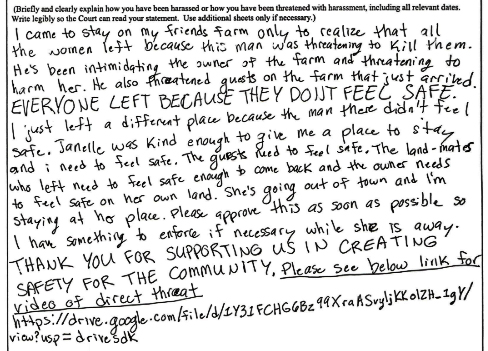 (Briefly and clearly explain how you have been harassed or how you have been threatened with harassment, including all relevant dates.
Write legibly so the Court can read your statement. Use additional sheets only if necessary.)
I came to stay on my friends farm only to realize that all
the women left because this man was threatening to kill them.
He's been intimidating the owner of the farm and threatening to
harm her. He also threatened guests on the farm that just arrived.
EVERYONE LEFT BECAUSE THEY DON'T FEEL SAFE.
I just left a different place because the man there didn't feel
safe. Janelle was kind enough to give me a place to stay
and i need to feel safe. The guests need to feel safe. The land-mates
who left need to feel safe enough to come back and the owner needs
to feel safe on her own land. She's going out of town and I'm
staying at her place. Please approve this as soon as possible so
I have something to enforce if necessary while she is away.
THANK YOU FOR SUPPORTING US IN CREATING
SAFETY FOR THE COMMUNITY. Please see below link for
video of direct threat
https://drive.google.com/file/d/1Y31FCHGGBz99XraASvyljKKolZH_IgY/
view?usp=drivesdk